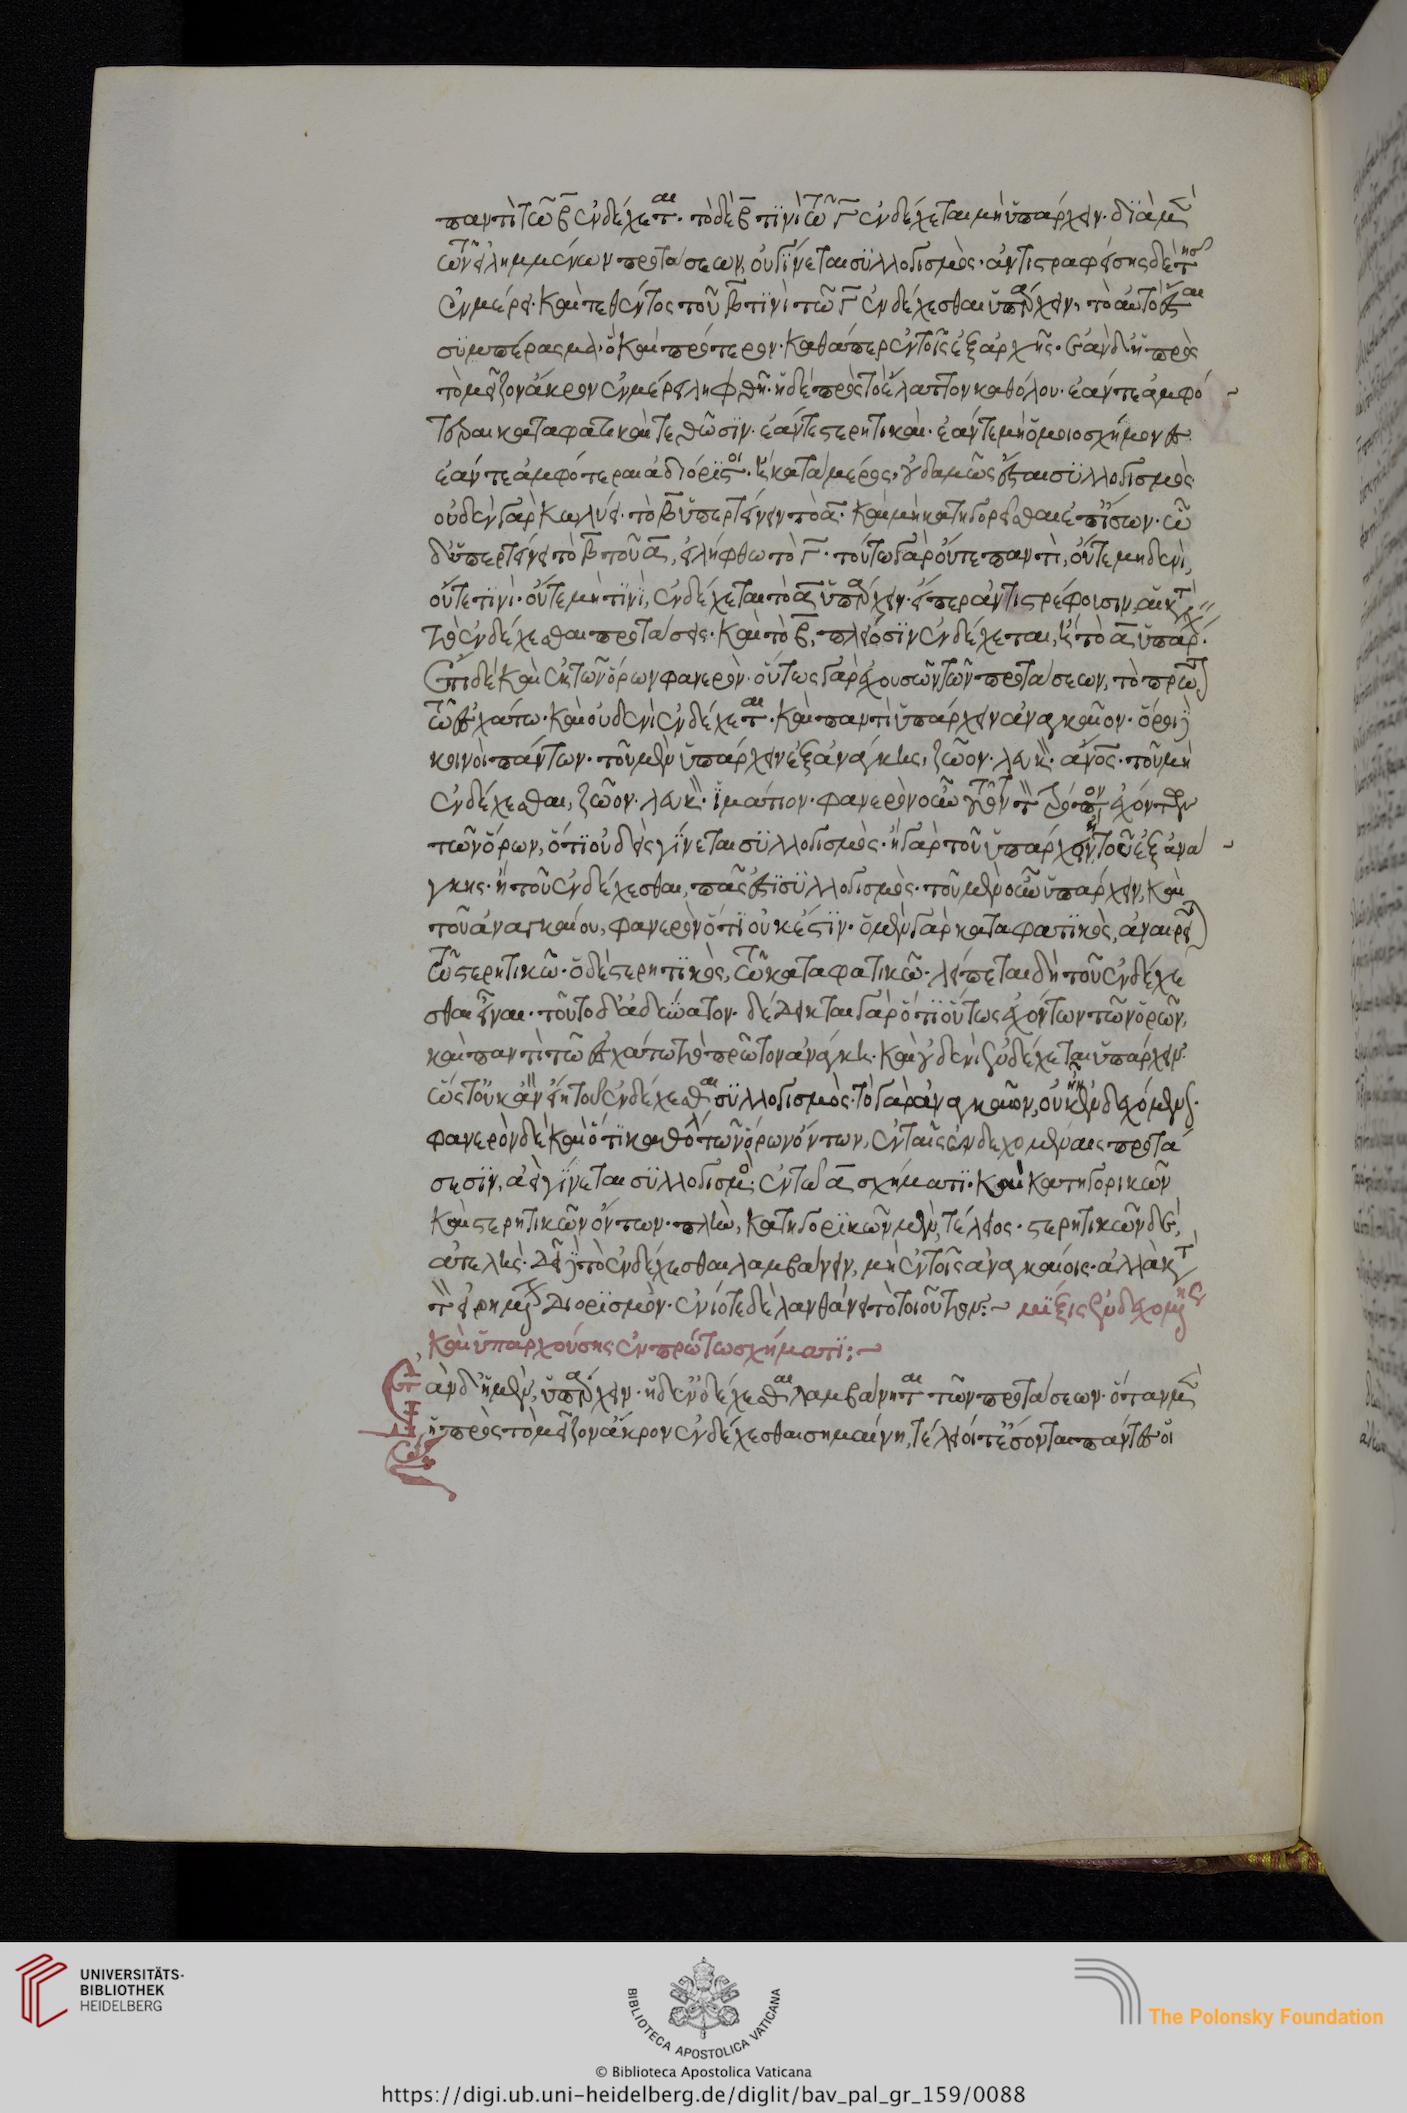 παντὶ τῶ β̅ ἐνδέχεται· τὸ δὲ β̅ τινὶ τῶ γ̅ ἐνδέχεται μὴ ὑπάρχειν· διὰ μὲν
τῶν εἰλημμένων προτάσεων, οὐ γίνεται συλλογισμὸς· ἀντιστραφείσης δὲ τῆς
ἐν μέρει· καὶ τεθέντος τοῦ β̅ τινὶ τῶ γ̅ ἐνδέχεσθαι ὑπάρχειν, τὸ αὐτὸ ἔσται
συμπέρασμα· ὃ καὶ πρότερον· καθάπερ ἐν τοῖς ἐξ ἀρχῆς· ἐὰν δ' ἡ πρὸς
τὸ μεῖζον ἄκρον ἐν μέρει ληφθῆ· ἡ δὲ πρὸς τὸ ἔλαττον καθόλου· ἐάν τε ἀμφό
τεραι καταφατικαὶ τεθῶσιν· ἐάν τε στερητικαὶ· ἐάν τε μὴ ὁμοιοσχήμονες·
ἐάν τε ἀμφότεραι ἀδιόριστοι· ἢ κατὰ μέρος, οὐδαμῶς ἔσται συλλογισμὸς
οὐδὲν γὰρ κωλύει· τὸ β̅ ὑπερτείνειν τὸ α̅· καὶ μὴ κατηγορεῖσθαι ἐπίσων· ὧ
δ' ὑπερτείνει τὸ β̅ τοῦ α̅, εἰλήφθω τὸ γ̅· τούτω γὰρ οὔτε παντὶ, οὔτε μηδενὶ,
οὔτε τινὶ· οὔτε μὴ τινὶ, ἐνδέχεται τὸ α̅ ὑπάρχειν· εἴπερ ἀντιστρέφουσιν αἱ κατὰ
τὸ ἐνδέχεσθαι προτάσεις· καὶ τὸ β̅, πλείοσιν ἐνδέχεται, ἢ τὸ α̅ ὑπάρχειν·
ἔτι δὲ καὶ ἐκ τῶν ὅρων φανερὸν· οὕτως γὰρ ἐχουσῶν τῶν προτάσεων, τὸ πρῶτον
τῶ ἐσχάτω· καὶ οὐδενὶ ἐνδέχεται· καὶ παντὶ ὑπάρχειν ἀναγκαῖον· ὅροι
κοινοὶ πάντων· τοῦ μὲν ὑπάρχειν ἐξ ἀνάγκης, ζῶον· λευκὸν· ἄνος· τοῦ μὴ
ἐνδέχεσθαι, ζῶον· λευκὸν· ἱμάτιον· φανερὸν οὖν τοῦτον τὸν τρόπον ἐχόντων
τῶν ὅρων, ὅτι οὐδεὶς γίνεται συλλογισμὸς· ἢ γὰρ τοῦ ὑπάρχειν ἢ τοῦ ἐξ ἀνά
γκης· ἢ τοῦ ἐνδέχεσθαι, πᾶς ἐστι συλλογισμὸς· τοῦ μὲν οὖν ὑπάρχειν, καὶ
τοῦ ἀναγκαίου, φανερὸν ὅτι οὐκ ἔστιν· ὁ μὲν γὰρ καταφατικὸς, ἀναιρεῖται
τῶ στερητικῶ· ὁ δὲ στερητικὸς, τῶ καταφατικῶ· λείπεται δὴ τοῦ ἐνδέχε
σθαι εἶναι· τοῦτο δ' ἀδύνατον· δέδεικται γὰρ ὅτι οὕτως ἐχόντων τῶν ὅρων,
καὶ παντὶ τῶ ἐσχάτω τὸ πρῶτον ἀνάγκη· καὶ οὐδενὶ ἐνδέχεται ὑπάρχειν·
ὥστ' οὐκ ἂν εἴη τοῦ ἐνδέχεσθαι συλλογισμὸς· τὸ γὰρ ἀναγκαῖον, οὐκ ἦν ἐνδεχόμενον·
φανερὸν δὲ καὶ ὅτι καθόλου τῶν ὅρων ὄντων, ἐν ταῖς ἐνδεχομέναις προτά
σεσιν, ἀεὶ γίνεται συλλογισμὸς ἐν τῶ α̅ σχήματι· καὶ κατηγορικῶν
καὶ στερητικῶν ὄντων· πλὴν, κατηγορικῶν μὲν, τέλειος· στερητικῶν δὲ,
ἀτελὴς· δεῖ δὲ τὸ ἐνδέχεσθαι λαμβάνειν, μὴ ἐν τοῖς ἀναγκαίοις· ἀλλὰ κατὰ
τὸν εἰρημένον διορισμὸν· ἐνίοτε δὲ λανθάνει τὸ τοιοῦτον:~ μίξις ἐνδεχομένης
καὶ ὑπαρχούσης ἐν πρώτω σχήματι:~
Ἐὰν δ' ἡ μὲν, ὑπάρχειν· ἡ δ' ἐνδέχεσθαι λαμβάνηται τῶν προτάσεων· ὅταν μὲν
ἡ πρὸς τὸ μεῖζον ἄκρον ἐνδέχεσθαι σημαίνη, τέλειοί τε ἔσονται πάντες οἱ
UNIVERSITÄTS-
BIBLIOTHEK
HEIDELBERG
BIBLIOTECA APOSTOLICA VATICANA
The Polonsky Foundation
© Biblioteca Apostolica Vaticana
https://digi.ub.uni-heidelberg.de/diglit/bav_pal_gr_159/0088